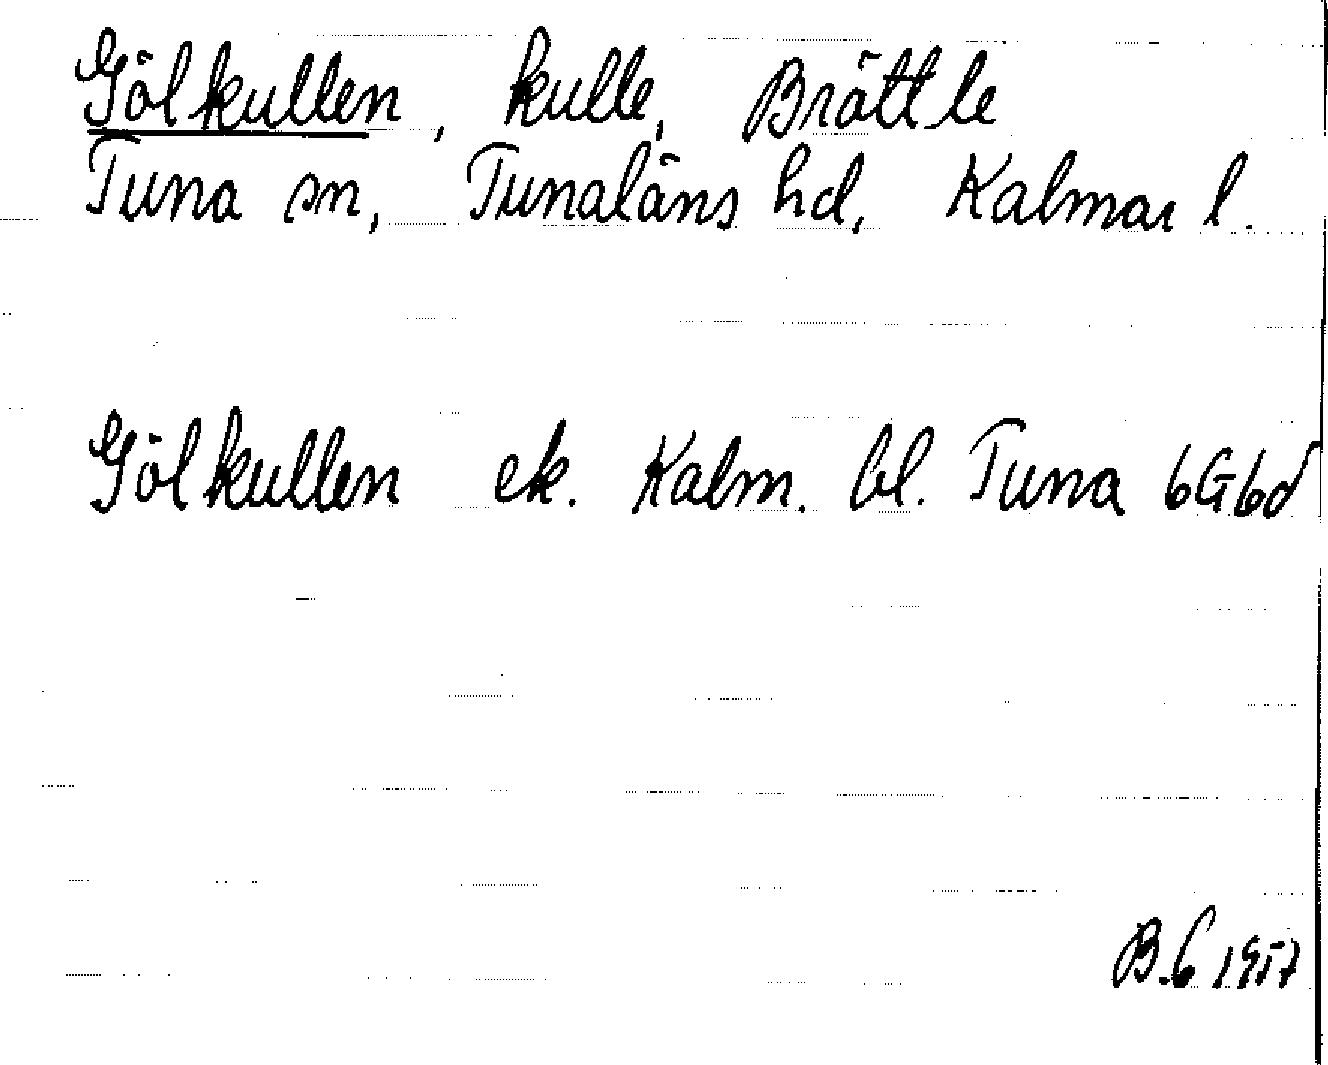 Gölkullen, kulle, Brättle
Tuna sn, Tunaläns hd, Kalmar l.
Gölkullen ek. Kalm. bl. Tuna 6G6d
B.G 1957